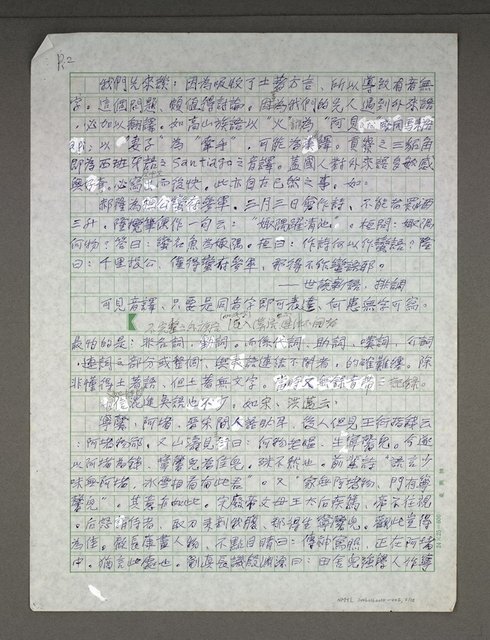 P.2
我們先來談：因為吸收了土著方言、所以導致有音無
字。這個問題、頗值得討論。因為我們的先人遇到外來語
，必加以翻譯。如高山族語以“火”為“阿見
以“妻子”為“牽手”，可能為漢譯。貢寮之三貂角
即為西班牙語之Santiago之音譯。蓋國人對外來語多敏感
與好奇。必寫而後快。此亦自古已然之事。如：
郝隆為參軍。三月三日會作詩、不能者罰酒
三升。隆攬筆便作一句云：“娵隅躍清池”。桓問：娵隅
何物？答曰：蠻名魚為娵隅。桓曰：作詩何以作蠻語？隆
曰：千里投公、僅得蠻府參軍、那得不作蠻語耶。
——世說新語，排調
可見音譯、只要是同音字即可表達、何患無字可寫。
最怕的是：非名詞，動詞，而係代詞、助詞、嘆詞、介詞
、連詞之部分或整個、與表語連結不開者，的確難纏。除
非懂得土著語、但土著無文字。
也不少，如宋、洪邁云：
寧馨，阿堵，晉宋間人語助耳。後人但見王衍指錢云
：阿堵物卻。又山濤見衍曰：何物老嫗，生寧馨兒。今遂
以阿堵為錢、寧馨兒為佳兒。殊不然也。前輩詩“語言少
味無阿堵，冰雪相看有此君”。又“家無阿堵物，門有寧
馨兒”。其意亦如此。宋廢帝之母王太后疾篤，帝不往視
。后怒謂侍者、取刀來剖我腹、那得生寧馨兒。觀此豈得
為佳。顧長康畫人物、不點目睛曰：傳神寫照，正在阿堵
中。猶言此處也。劉真長譏殷淵源曰：田舍兒強學人作寧